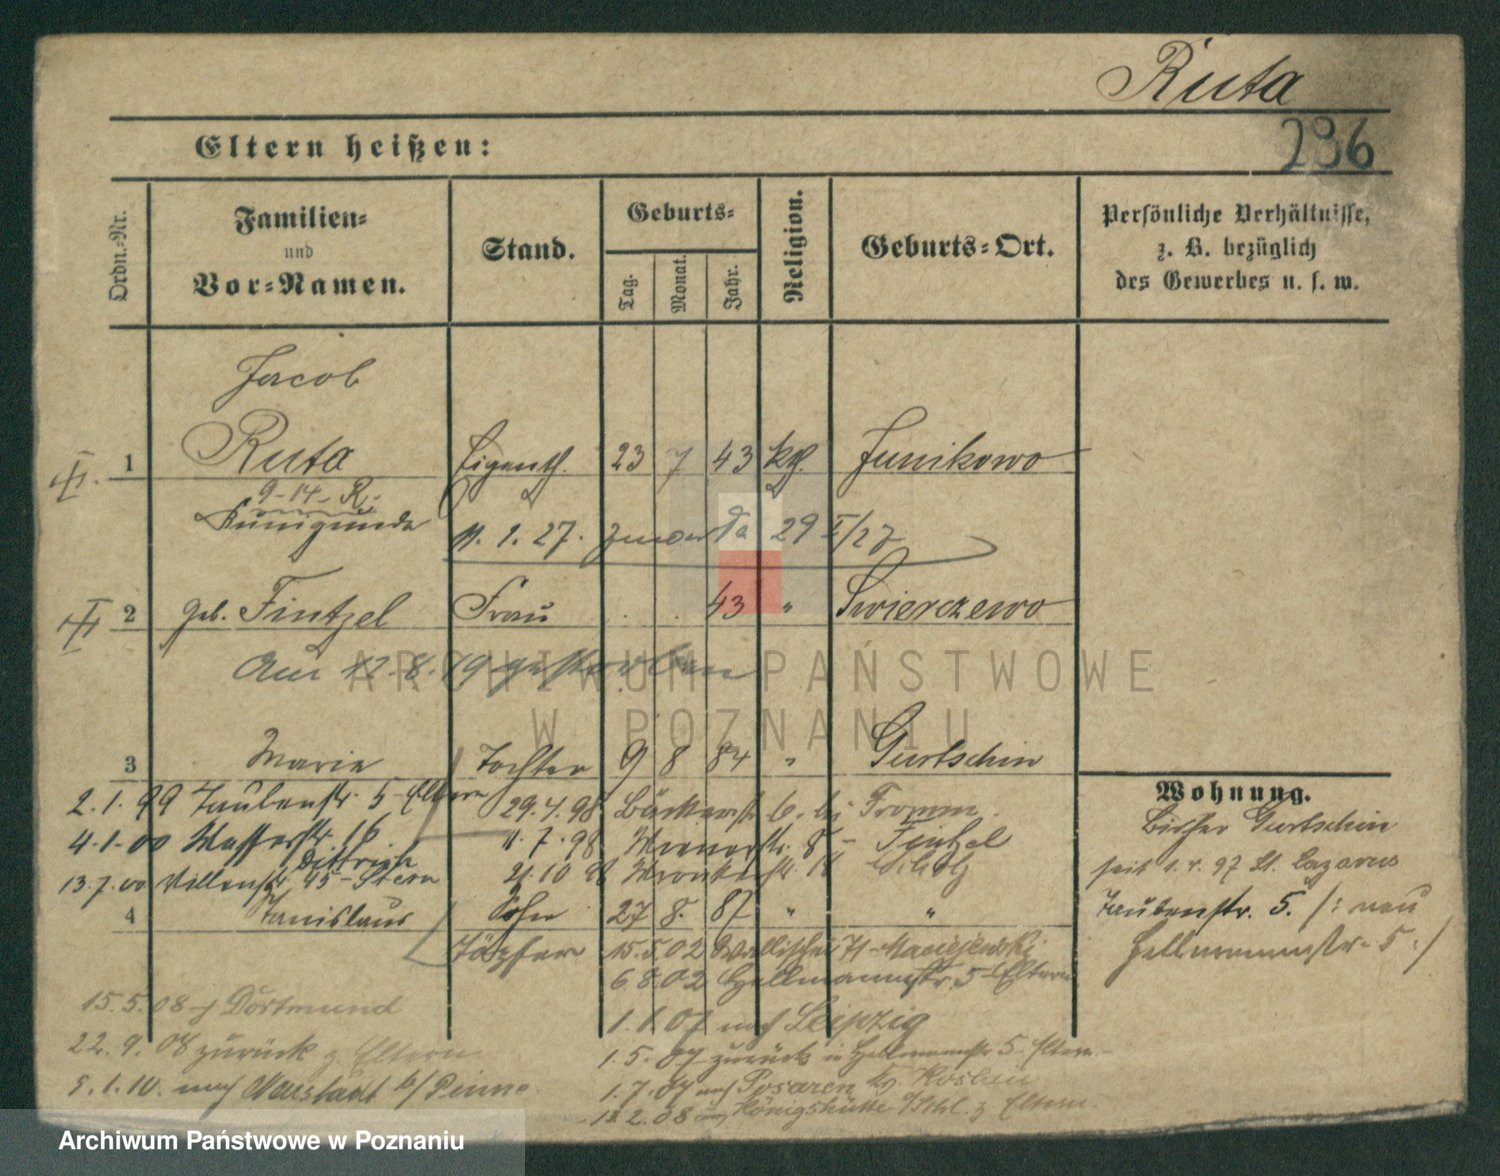 Ruta
236
Eltern heißen:
Ordn.-Nr.
Familien-
und
Vor-Namen.
Stand.
Geburts-
Tag.
Monat.
Jahr.
Religion.
Geburts-Ort.
Persönliche Verhältnisse,
z. B. bezüglich
des Gewerbes u. s. w.
Jacob
1 Ruta Eigenth. 23 7 43 kth. Junikowo
9-14-R.
Kunigunde
11. 1. 27. 29 I/27
2 geb. Fintzel Frau 43 " Swierczewo
Am 12.8.19 gestorben
3 Marie Tochter 9 8 84 " Gurtschin
2.1.99 Taubenstr. 5 - Eltern
29.4.98 Bäckerstr. 6. bei Fromm.
4.1.00 Wasserstr. 16
Dittrich
11.7.98 - Fintzel
13.7.00 45 - Stern
21.10.98
4 Stanislaus Sohn 27 8. 87 " "
Töpfer 15.5.02 Wallischei 71 - Maciejewski
6.8.02 Hellmannstr. 5 - Eltern
1.1.07 nach Leipzig
1.5.07 zurück in Hellmannstr 5 - Eltern
1.7.07 nach Posaren
12.2.08 Königshütte z. Eltern
15.5.08 Dortmund
22.9.08 zurück z. Eltern
5.1.10. nach Neustadt b/Pinne
Wohnung.
Bisher Gurtschin
seit 1.4.97 St. Lazarus
Taubenstr. 5. /: neu
Hellmannstr. 5 :/
ARCHIWUM PAŃSTWOWE
W POZNANIU
Archiwum Państwowe w Poznaniu